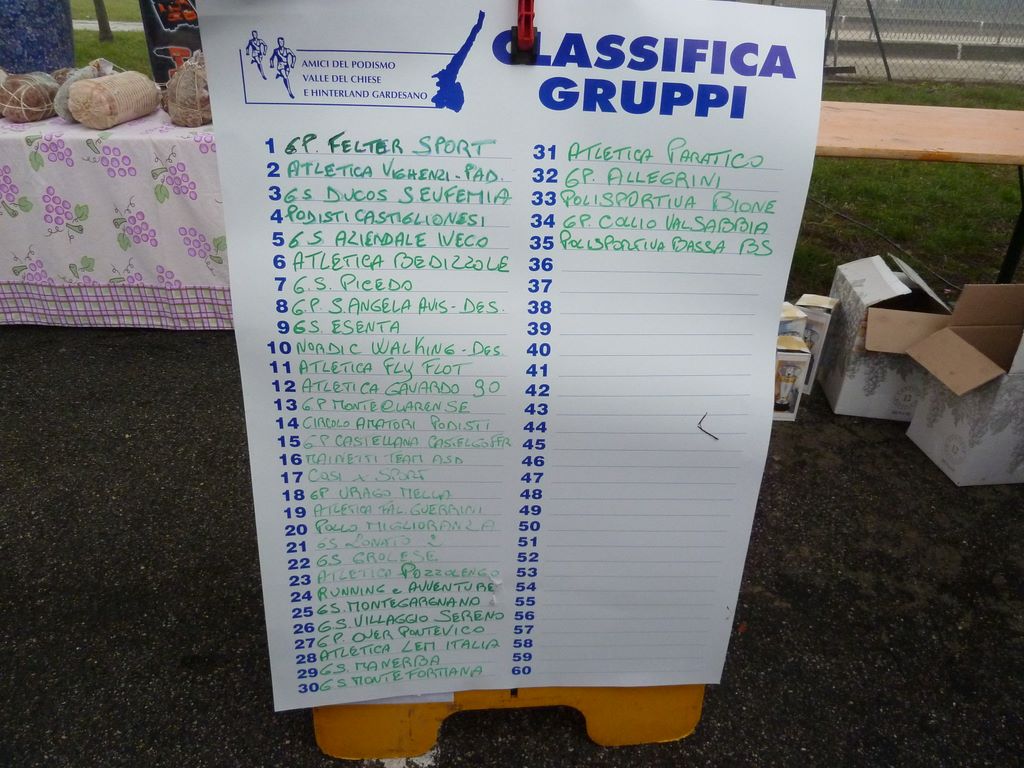 AMICI DEL PODISMO
VALLE DEL CHIESE
E HINTERLAND GARDESANO
CLASSIFICA
GRUPPI
1 GP. FELTER SPORT
2 ATLETICA VIGHENZI-PAD.
3 GS DUCOS S EUFEMIA
4 PODISTI CASTIGLIONESI
5 G S. AZIENDALE IVECO
6 ATLETICA BEDIZZOLE
7 G.S. PICEDO
8 G.P. S.ANGELA AVIS-DES.
9 GS. ESENTA
10 NORDIC WALKING-DES.
11 ATLETICA FLY FLOT
12 ATLETICA GAVARDO 90
13 G.P MONTEQLARENSE
14 CIRCOLO AMATORI PODISTI
15 GP CASTELLANA CASTELGOFFR
16 MAINETTI TEAM ASD
17 COSI X SPORT
18 GP URAGO MELLA
19 ATLETICA FAL. GUERRINI
20 POLLO MIGLIORANZA
21 GS LONATO 2
22 GS GROLESE
23 ATLETICA POZZOLENGO
24 RUNNING e AVVENTURE
25 GS. MONTEGARGNANO
26 G.S. VILLAGGIO SERENO
27 G P. OVER PONTEVICO
28 ATLETICA LEM ITALIA
29 GS. MANERBA
30 G S MONTEFORTIANA
31 ATLETICA PARATICO
32 GP. ALLEGRINI
33 POLISPORTIVA BIONE
34 GP. COLLIO VALSABBIA
35 POLISPORTIVA BASSA BS
36
37
38
39
40
41
42
43
44
45
46
47
48
49
50
51
52
53
54
55
56
57
58
59
60